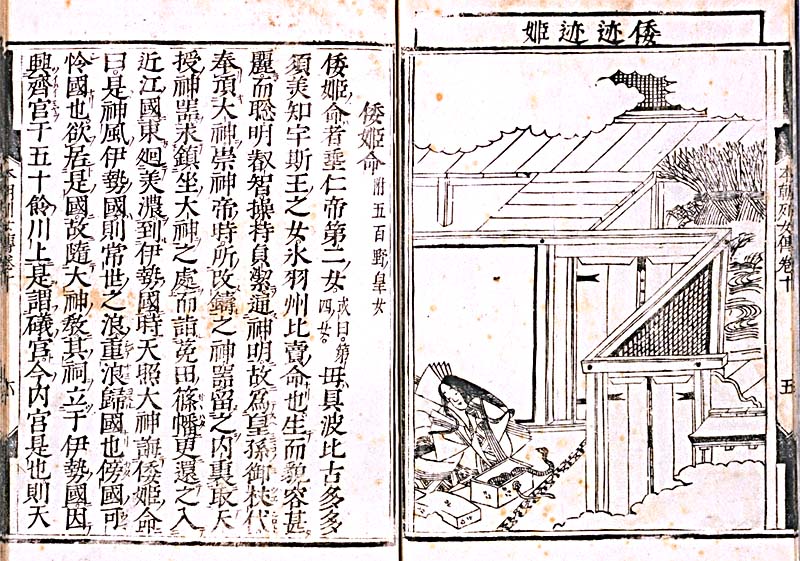 倭迹迹姫
本朝列女傳卷十
五
倭姫命 附五百野皇女
倭姫命者垂仁帝第二女 或曰第四女 母具波比古多多
須美知宇斯王之女氷羽州比賣命也生而貌容甚
麗而聡明叡智操持貞潔通神明故為皇孫御杖代
奉頂大神崇神帝時所改鑄之神器留之内裏取天
授神器求鎮坐大神之處而詣莵田篠幡更還之入
近江國東廻美濃到伊勢國時天照大神誨倭姫命
曰是神風伊勢國則常世之浪重浪歸國也傍國可
怜國也欲居是國故隨大神教其祠立于伊勢國因
興齊宮于五十鈴川上是謂礒宮今内宮是也則天
六